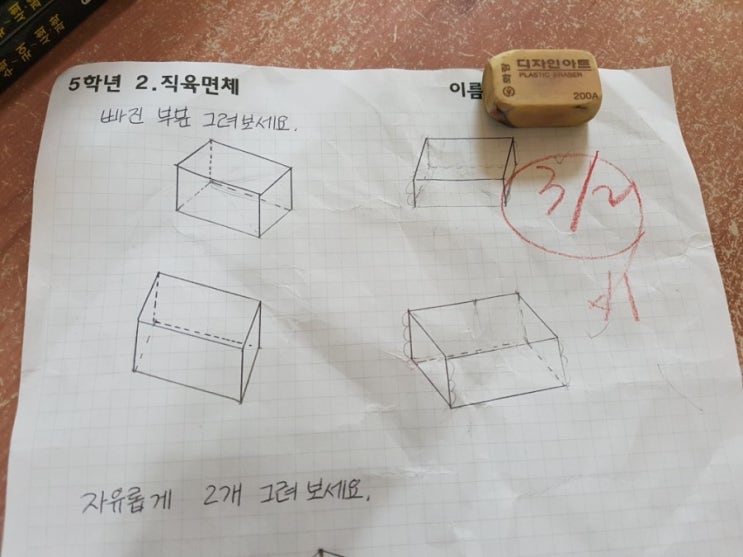 5학년 2.직육면체
이름
디자인아트
PLASTIC ERASER
200A
빠진 부분 그려보세요.
3/2
자유롭게 2개 그려 보세요.